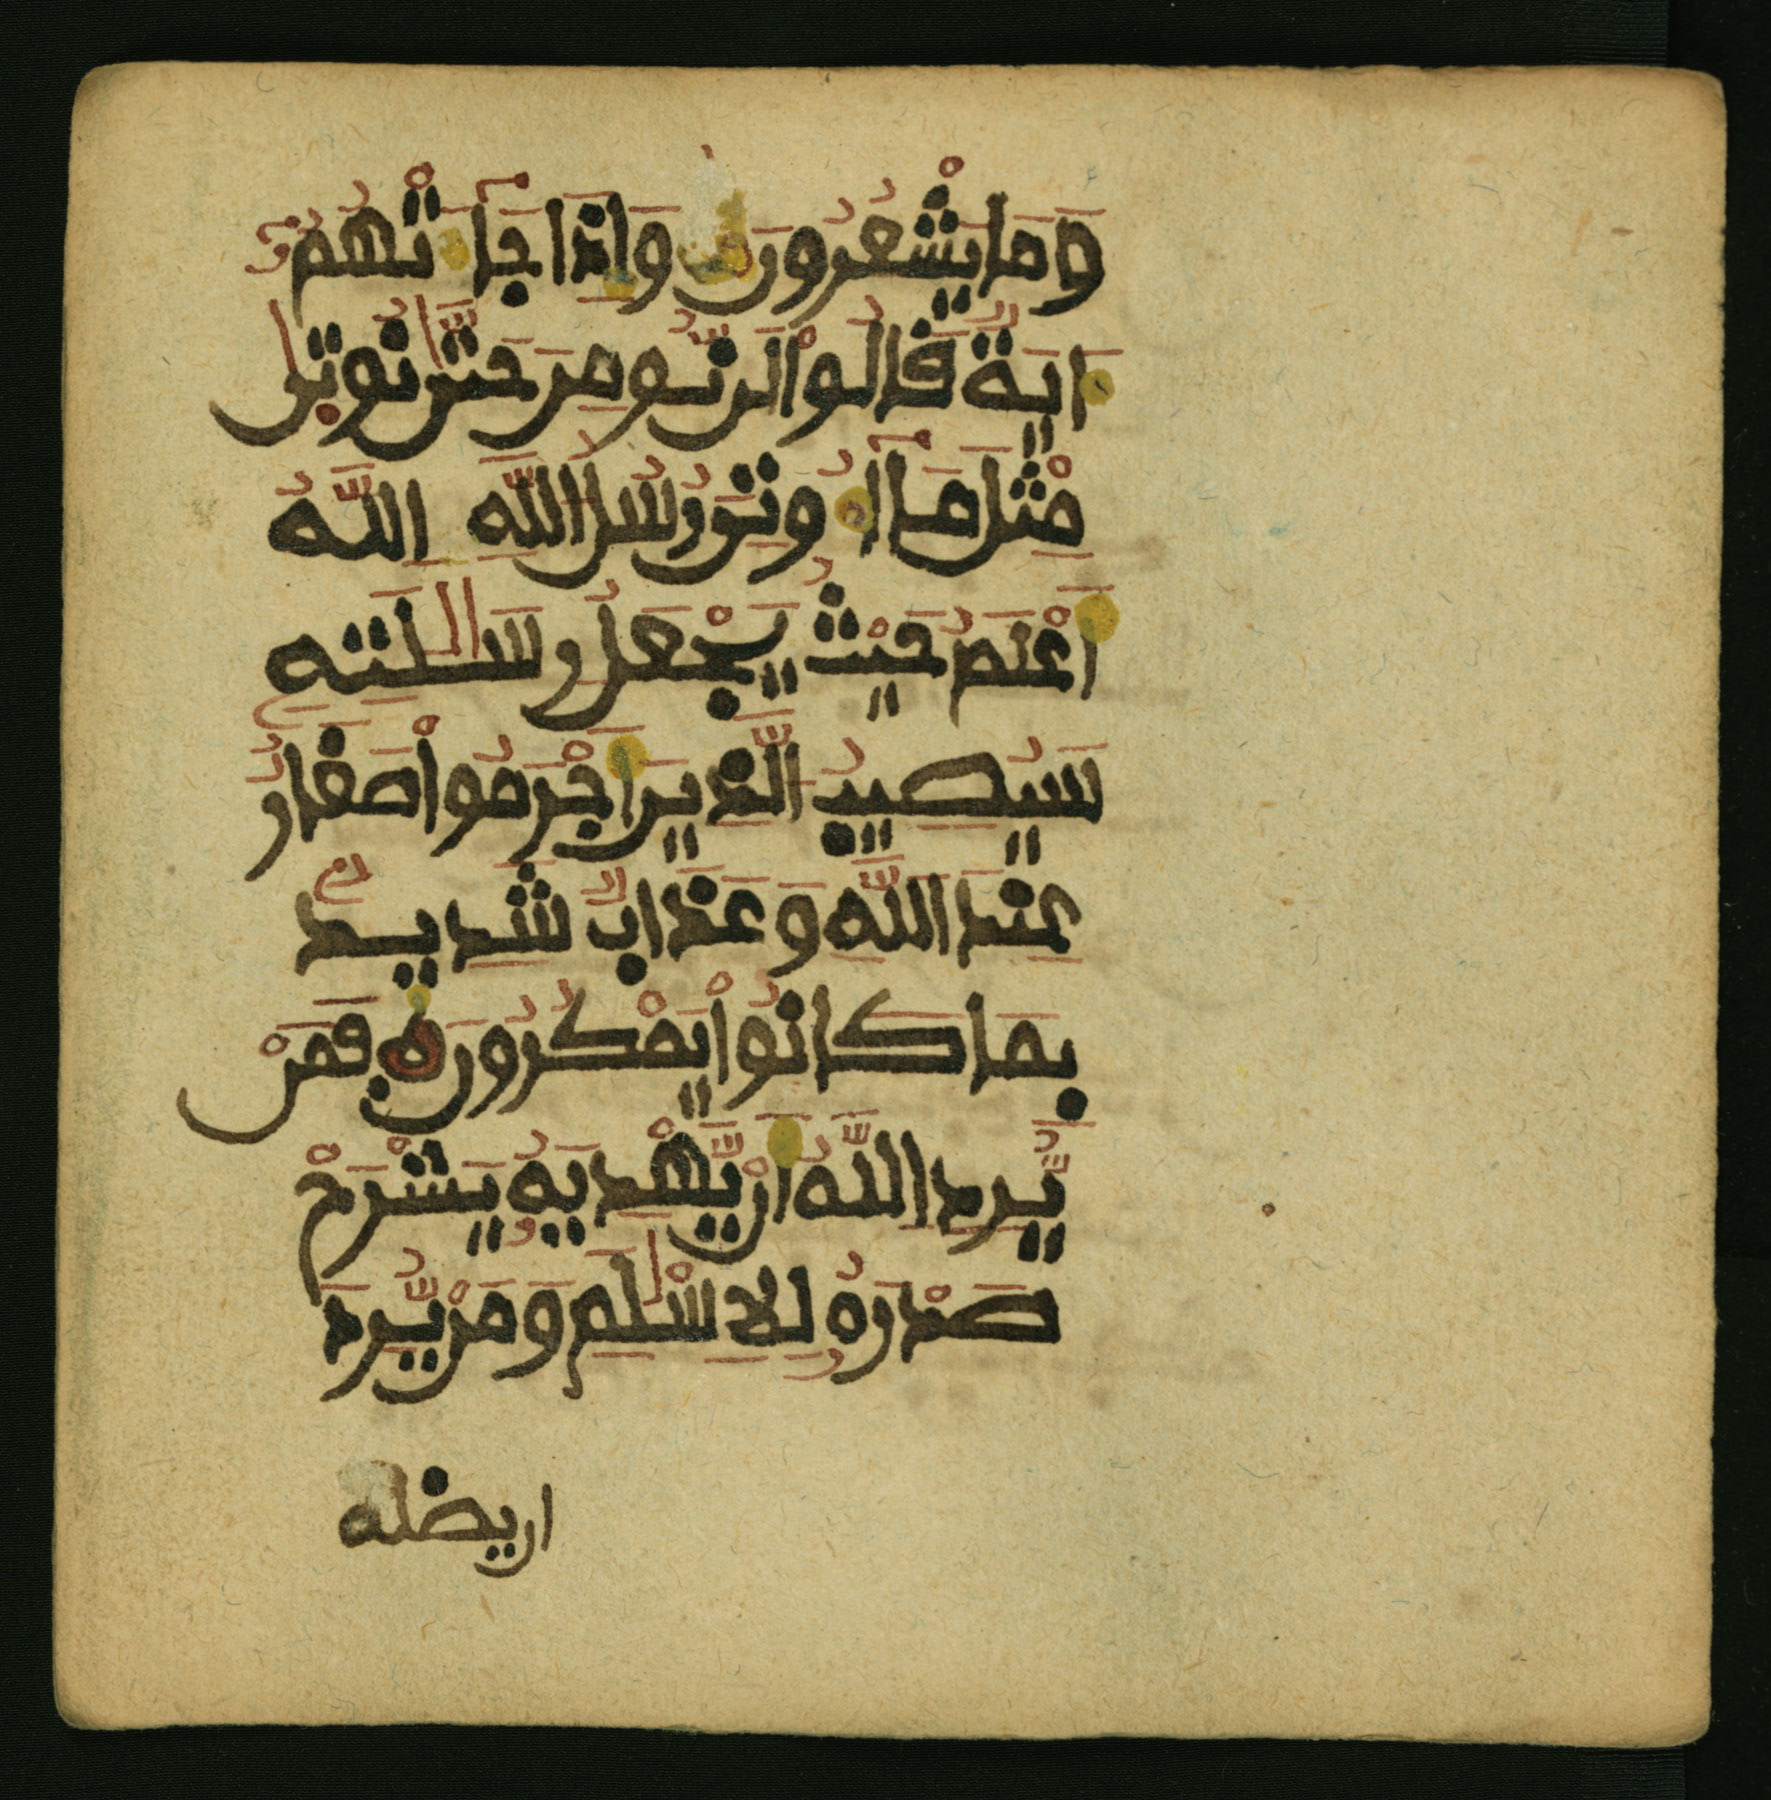 وَمَا يَشْعُرُونَ وَإِذَا جَآءَتْهُمُۥٓ
ءَايَةٌ قَالُواْ لَن نُّومِنَ حَتَّىٰ نُوتِىٰ
مِثْلَ مَآ أُوتِيَ رُسُلُ اللَّهِ اللَّهُ
أَعْلَمُ حَيْثُ يَجْعَلُ رِسَٰلَٰتِهِۦ
سَيُصِيبُ الَّذِينَ أَجْرَمُواْ صَغَارٌ
عِندَ اللَّهِ وَعَذَابٌ شَدِيدٌۢ
بِمَا كَانُواْ يَمْكُرُونَ فَمَنْ
يُّرِدِ اللَّهُ أَنْ يَّهْدِيَهُۥ يَشْرَحْ
صَدْرَهُۥ لِلِاسْلَٰمِ وَمَنْ يُّرِدَ
ان يضله